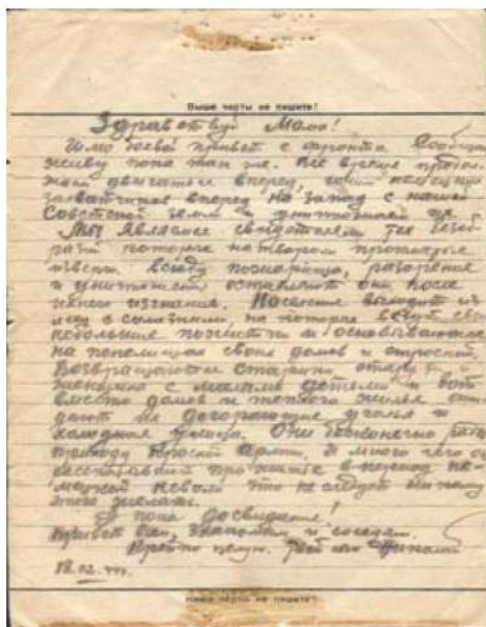 Выше черты не пишите!
Здравствуй Мама!
Шлю боевой привет с фронта. Сообщаю
живу пока так же. Все время продол-
жаем двигаться вперед, гоним немецких
захватчиков вперед на запад с нашей
Советской земли и уничтожаем их.
Мы являемся свидетелями тех безоб-
разий которые натворили проклятые
изверги. Всюду пожарища, разорения
и уничтож оставляют они после
своего изгнания. Население выходит из
леса с салазками на которых везут свои
небольшие пожитки и основываются
на пепелищах своих домов и строений.
Возвращаются старики старухи и
женщины с малыми детьми и вот
вместо домов и теплого жилья ожи-
дают их догорающие уголья и
холодная улица. Они бесконечно рады
приходу Красной армии. И много чего они
рассказывают про житье в период не-
мецкой неволи что не следует никому
этого желать.
А пока досвидание!
Привет всем, знакомым и соседям.
Крепко целую.
18.02.44г.
Ниже черты не пишите!